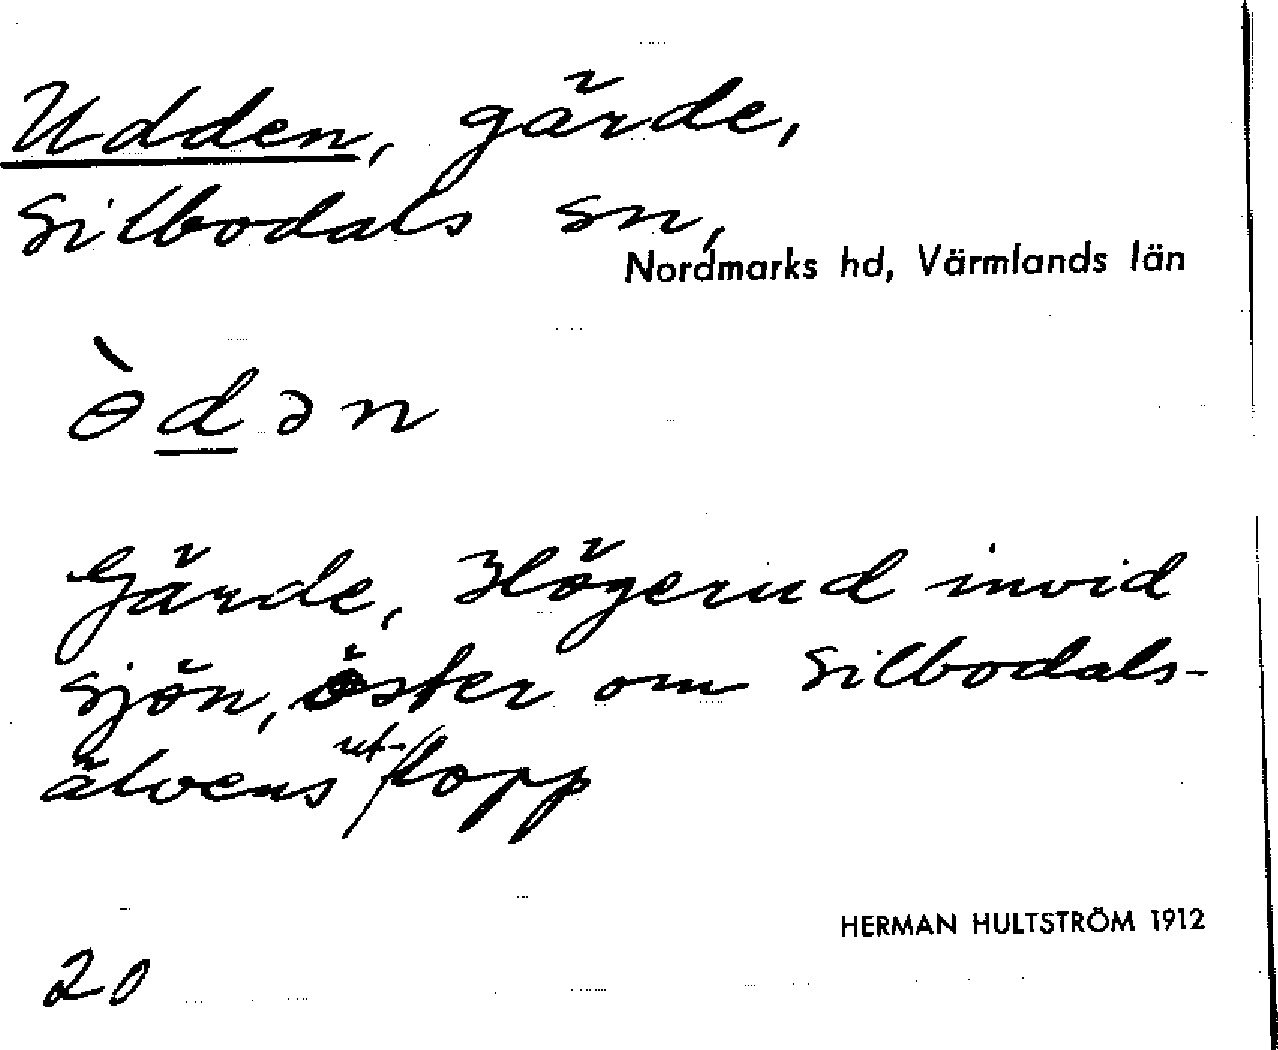 Udden, gärde,
Silbodals sn,
Nordmarks hd, Värmlands län
ɵ̀dən
Gärde, Högerud invid
sjön, öster om Silbodals-
älvens utlopp
HERMAN HULTSTRÖM 1912
20